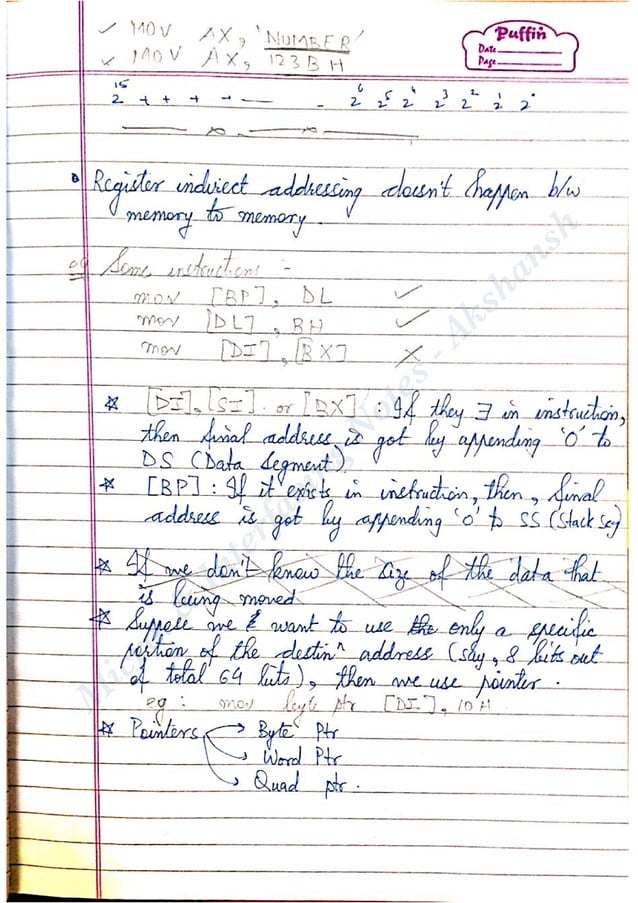 ✓ MOV AX, 'NUMBER'
✓ MOV AX, 123B H
Puffin
Date
Page
2^15 + + + - — - 2^6 2^5 2^4 2^3 2^2 2^1 2^0
Register indirect addressing doesn't happen b/w
memory to memory.
eg Some instructions :-
mov [BP], DL ✓
mov [DL], BH ✓
mov [DI], [BX] ✗
☆ [DI], [SI] or [BX] : If they ∃ in instruction,
then final address is got by appending '0' to
DS (Data Segment)
☆ [BP] : If it exists in instruction, then, final
address is got by appending '0' to SS (Stack Seg)
☆ If we don't know the size of the data that
is being moved
☆ Suppose we want to use the only a specific
portion of the destinⁿ address (say, 8 bits out
of total 64 bits), then we use pointer.
eg : mov byte ptr [DI], 10H
☆ Pointers → Byte Ptr
→ Word Ptr
→ Quad ptr.
Interfacing Notes - Akshansh